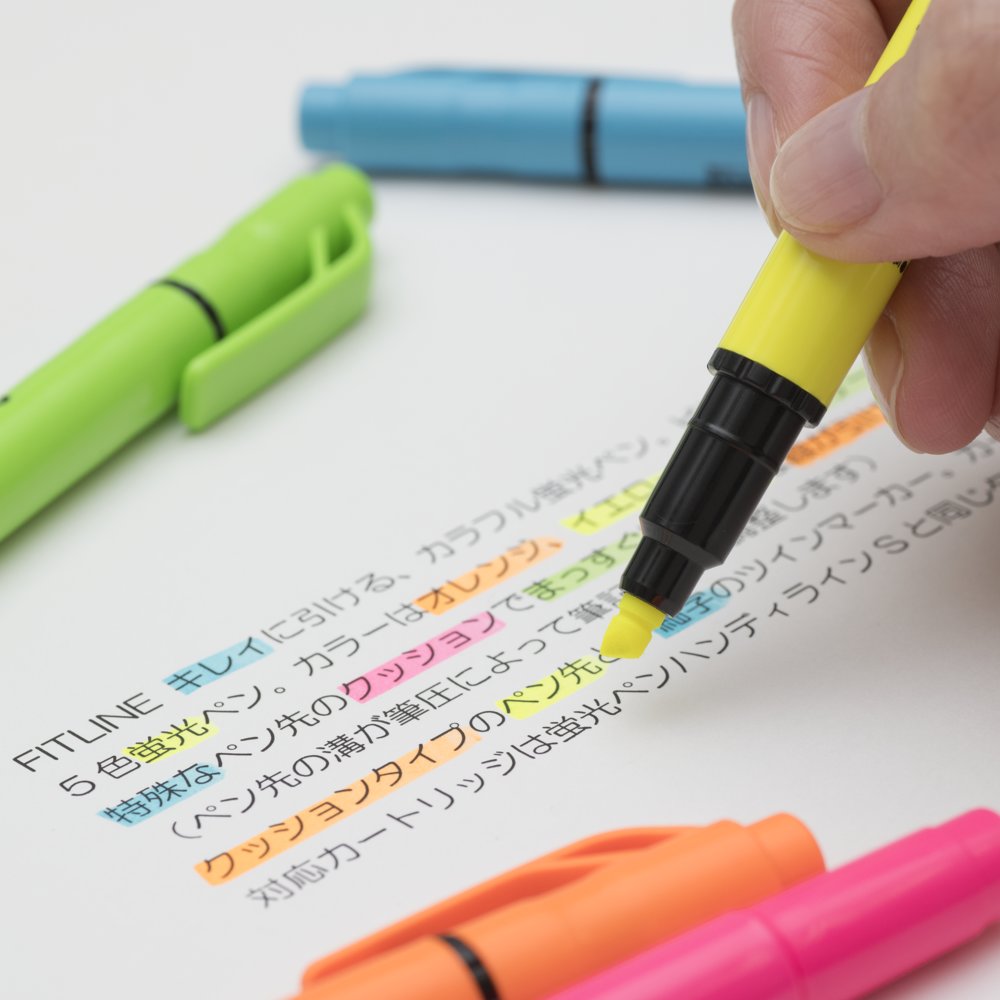 FITLINE キレイに引ける、カラフル蛍光ペン。
5色蛍光ペン。カラーはオレンジ、イエロ
特殊なペン先のクッションでまっすぐ
(ペン先の溝が筆圧によって筆記 します)
クッションタイプのペン先と 端子のツインマーカー。カ
対応カートリッジは蛍光ペンハンディラインSと同じタ